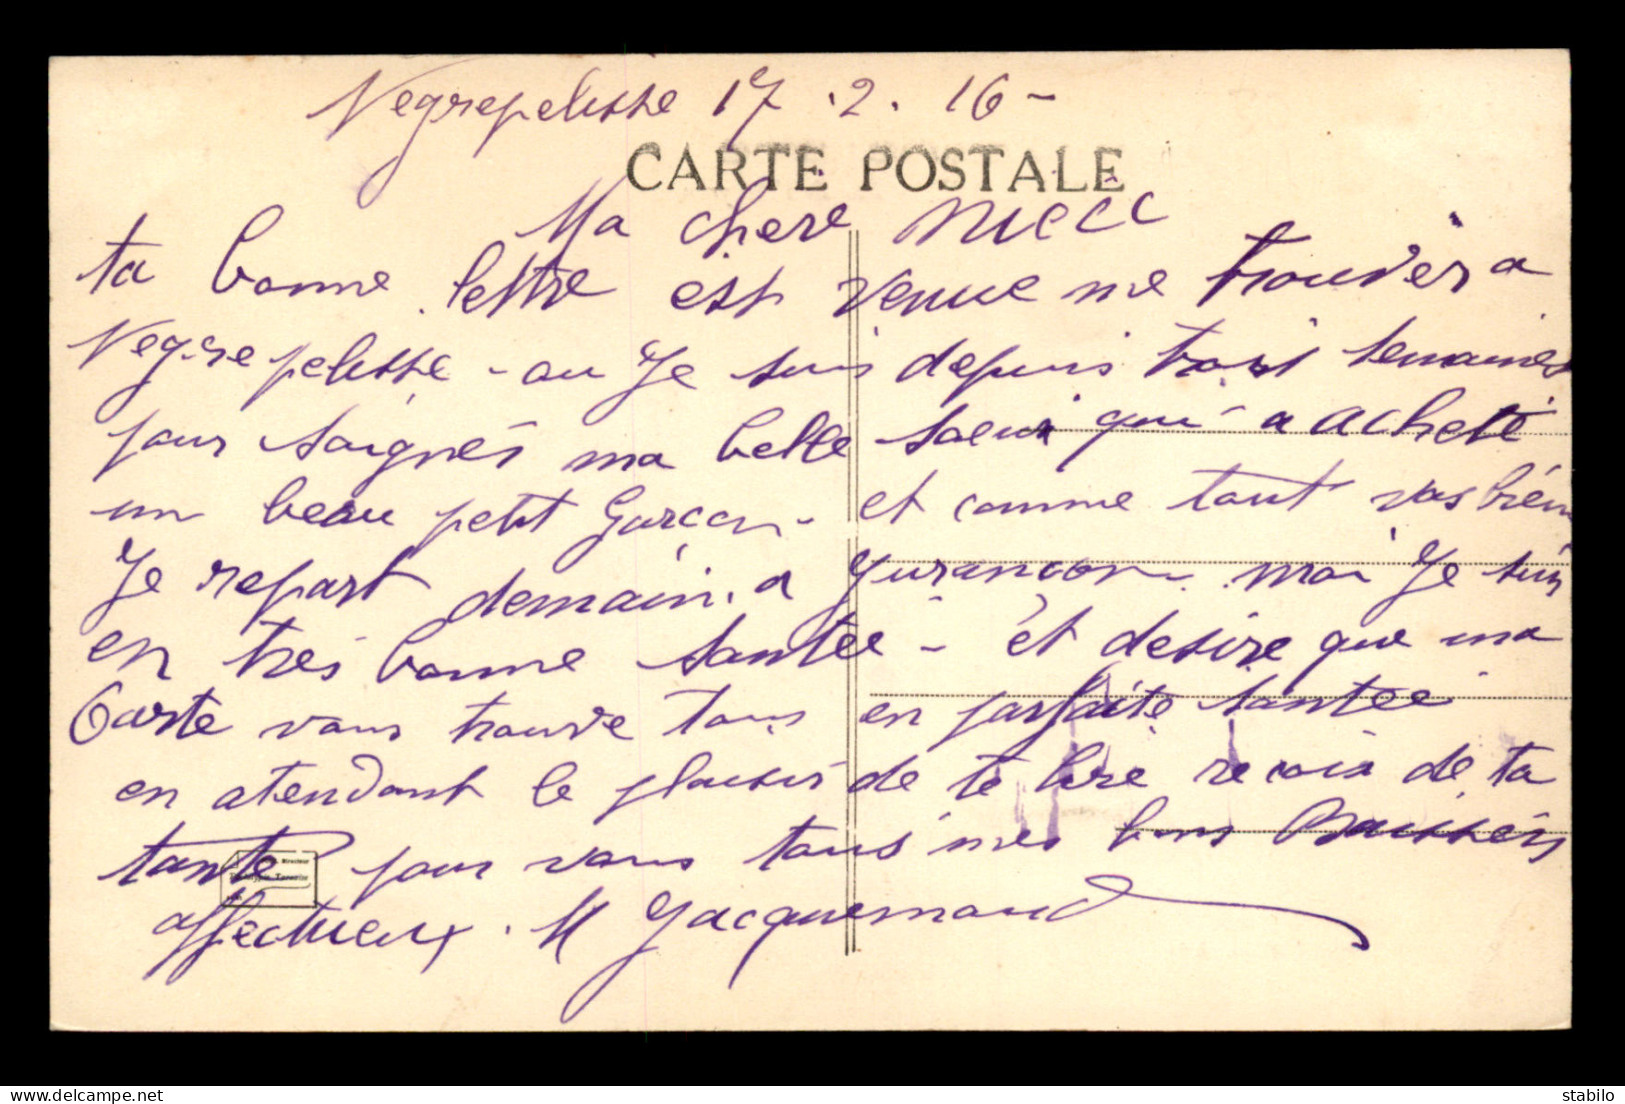 Negrepelisse 17.2.16-
CARTE POSTALE
Ma chere niece
ta bonne lettre est venue me trouver a
Negrepelisse - ou Je suis depuis trois semaines
pour soignés ma belle soeur qui a acheté
un beau petit Garçon - et comme tout vas bien
Je repart demain. a Jurançon - moi Je suis
en très bonne santée - et desire que ma
Carte vous trouve tous en parfaite santée
en atendant le plaisir de te lire reçoix de ta
tante pour vous tous mes bons Baissers
affectueux. M Jacquemond
delcampe.net
stabilo